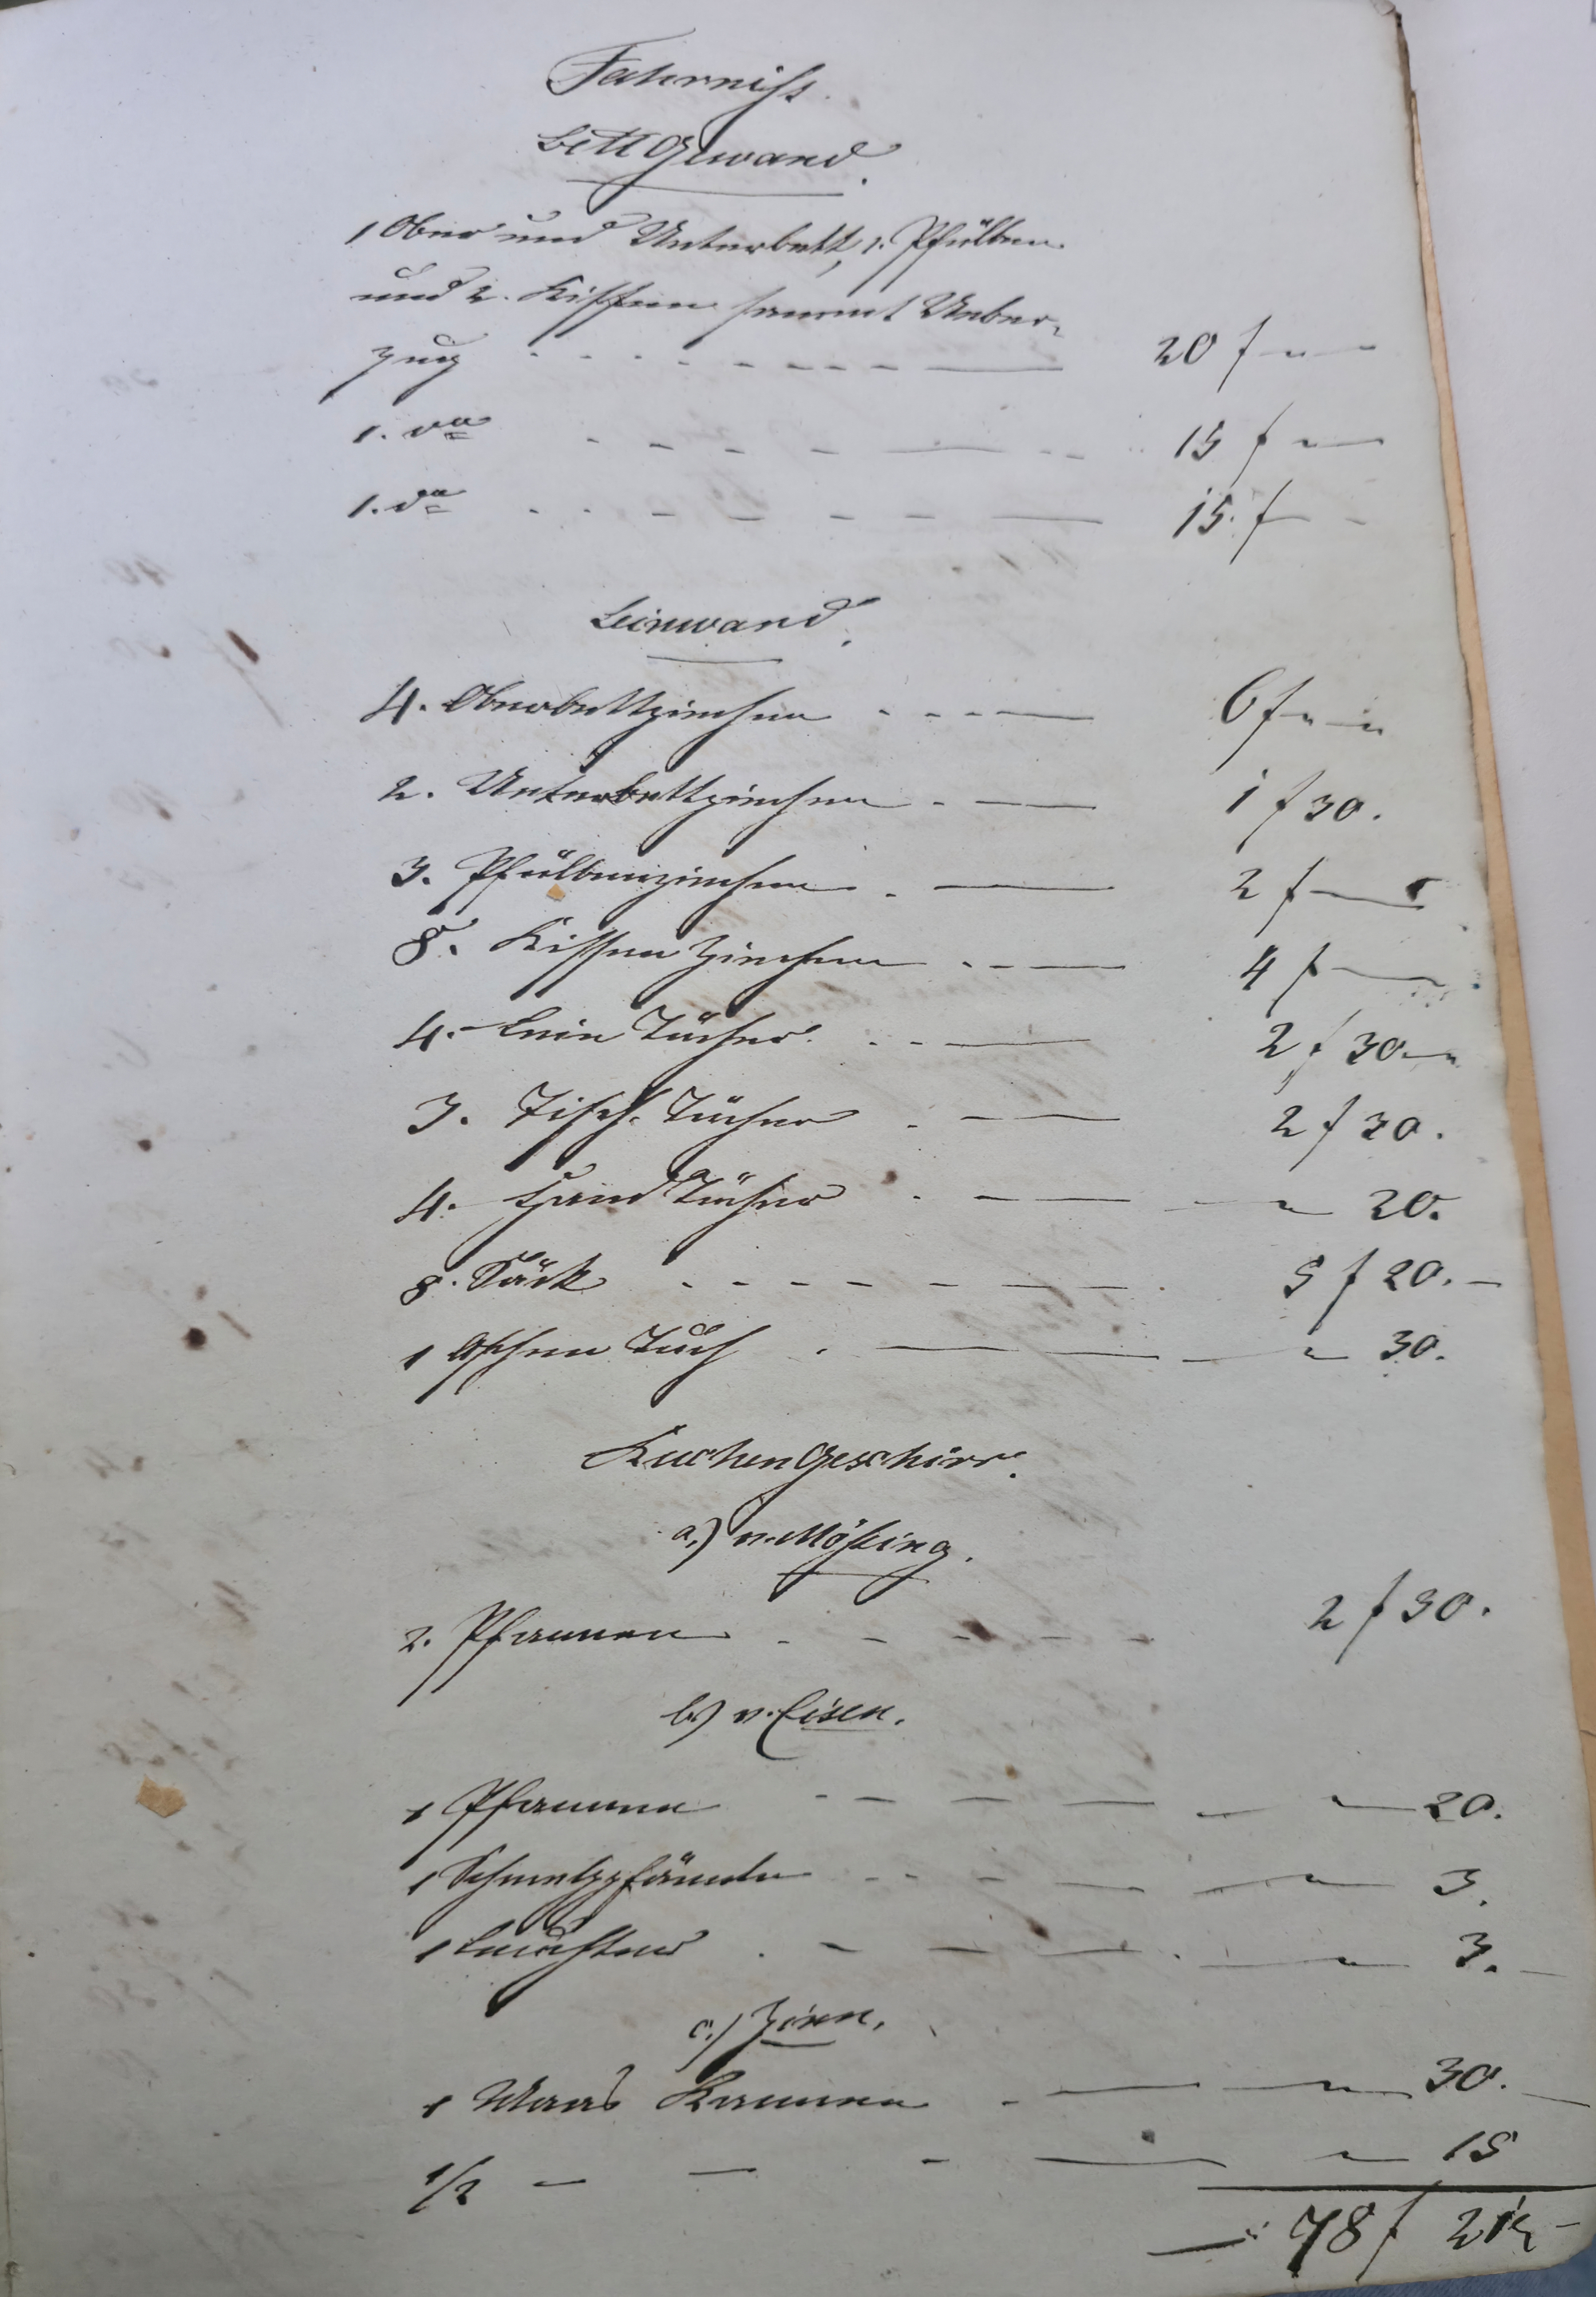 Fahrniß.
Bettgewand.
1 Ober und Unterbett, 1. Pfülben
und 2. Kissen sammt Ueber-
zug - - - - - - - 20 f "
1. do - - - - 15 f "
1. do - - - - - - 15. f -
Leinwand.
4. Oberbettziechen - - - - 6 f " "
2. Unterbettziechen - - 1 f 30.
3. Pfülbenziechen . - 2 f -
8. Kissenziechen - - - 4 f -
4. Lein Tücher . - - - 2 f 30 "
3. Tisch Tücher . - - 2 f 30.
4. Hand Tücher . - - " 20.
8. Säck - - - - - - - 5 f 20. -
1 Aschen Tuch . - - " 30.
KuchenGeschirr.
a.) v. Mößing.
2. Pfannen - - - - - 2 f 30.
b.) v. Eisen.
1 Pfanne - - - - - " 20.
1 Schmelzpfännle - - - - - " 3.
1 Leuchter . - - - - " 3. -
c.) Zinn.
1 Maas Kannen - - - " 30. -
1/2 - - - - " 15
78 f 21 -